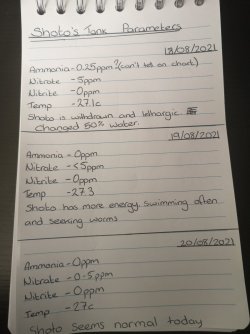 Shoto's Tank Parameters
18/08/2021
Ammonia - 0.25ppm? (can't tell on chart)
Nitrate - 5ppm
Nitrite - 0ppm
Temp - 27.1c
Shoto is withdrawn and lethargic
Changed 50% water.
19/08/2021
Ammonia - 0ppm
Nitrate - <5ppm
Nitrite - 0ppm
Temp - 27.3
Shoto has more energy, swimming often
and seeking worms
20/08/2021
Ammonia - 0ppm
Nitrate - 0-5ppm
Nitrite - 0ppm
Temp - 27c
Shoto seems normal today